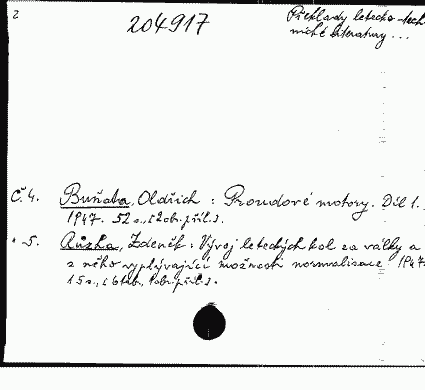 2
204917
Překlady letecko-tech
nické literatury...
Č. 4. Buňata, Oldřich : Proudové motory. Díl 1.
1947. 52 s., [2 obr. příl.].
" 5. Růzha, Zdeněk : Vývoj leteckých kol za války a
z něho vyplývající možnosti normalisace. 1947.
15 s., [6 tab., 1 obr. příl.].